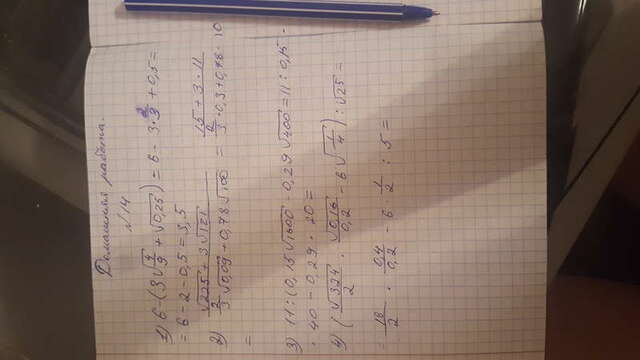 Домашняя работа.
№14
1) 6-(3√4/9 + √0,25) = 6 - 3·2/3 + 0,5 =
= 6 - 2 - 0,5 = 3,5
2) (√225 + 3√121)/(2/3√0,09 + 0,78√100) = (15 + 3·11)/(2/3·0,3 + 0,78·10)
=
3) 11:(0,15√1600 - 0,29√400 = 11:0,15·
· 40 - 0,29 · 20 =
4) (√324/2 · √0,16/0,2 - 6√1/4) : √25 =
= 18/2 · 0,4/0,2 - 6 · 1/2 : 5 =